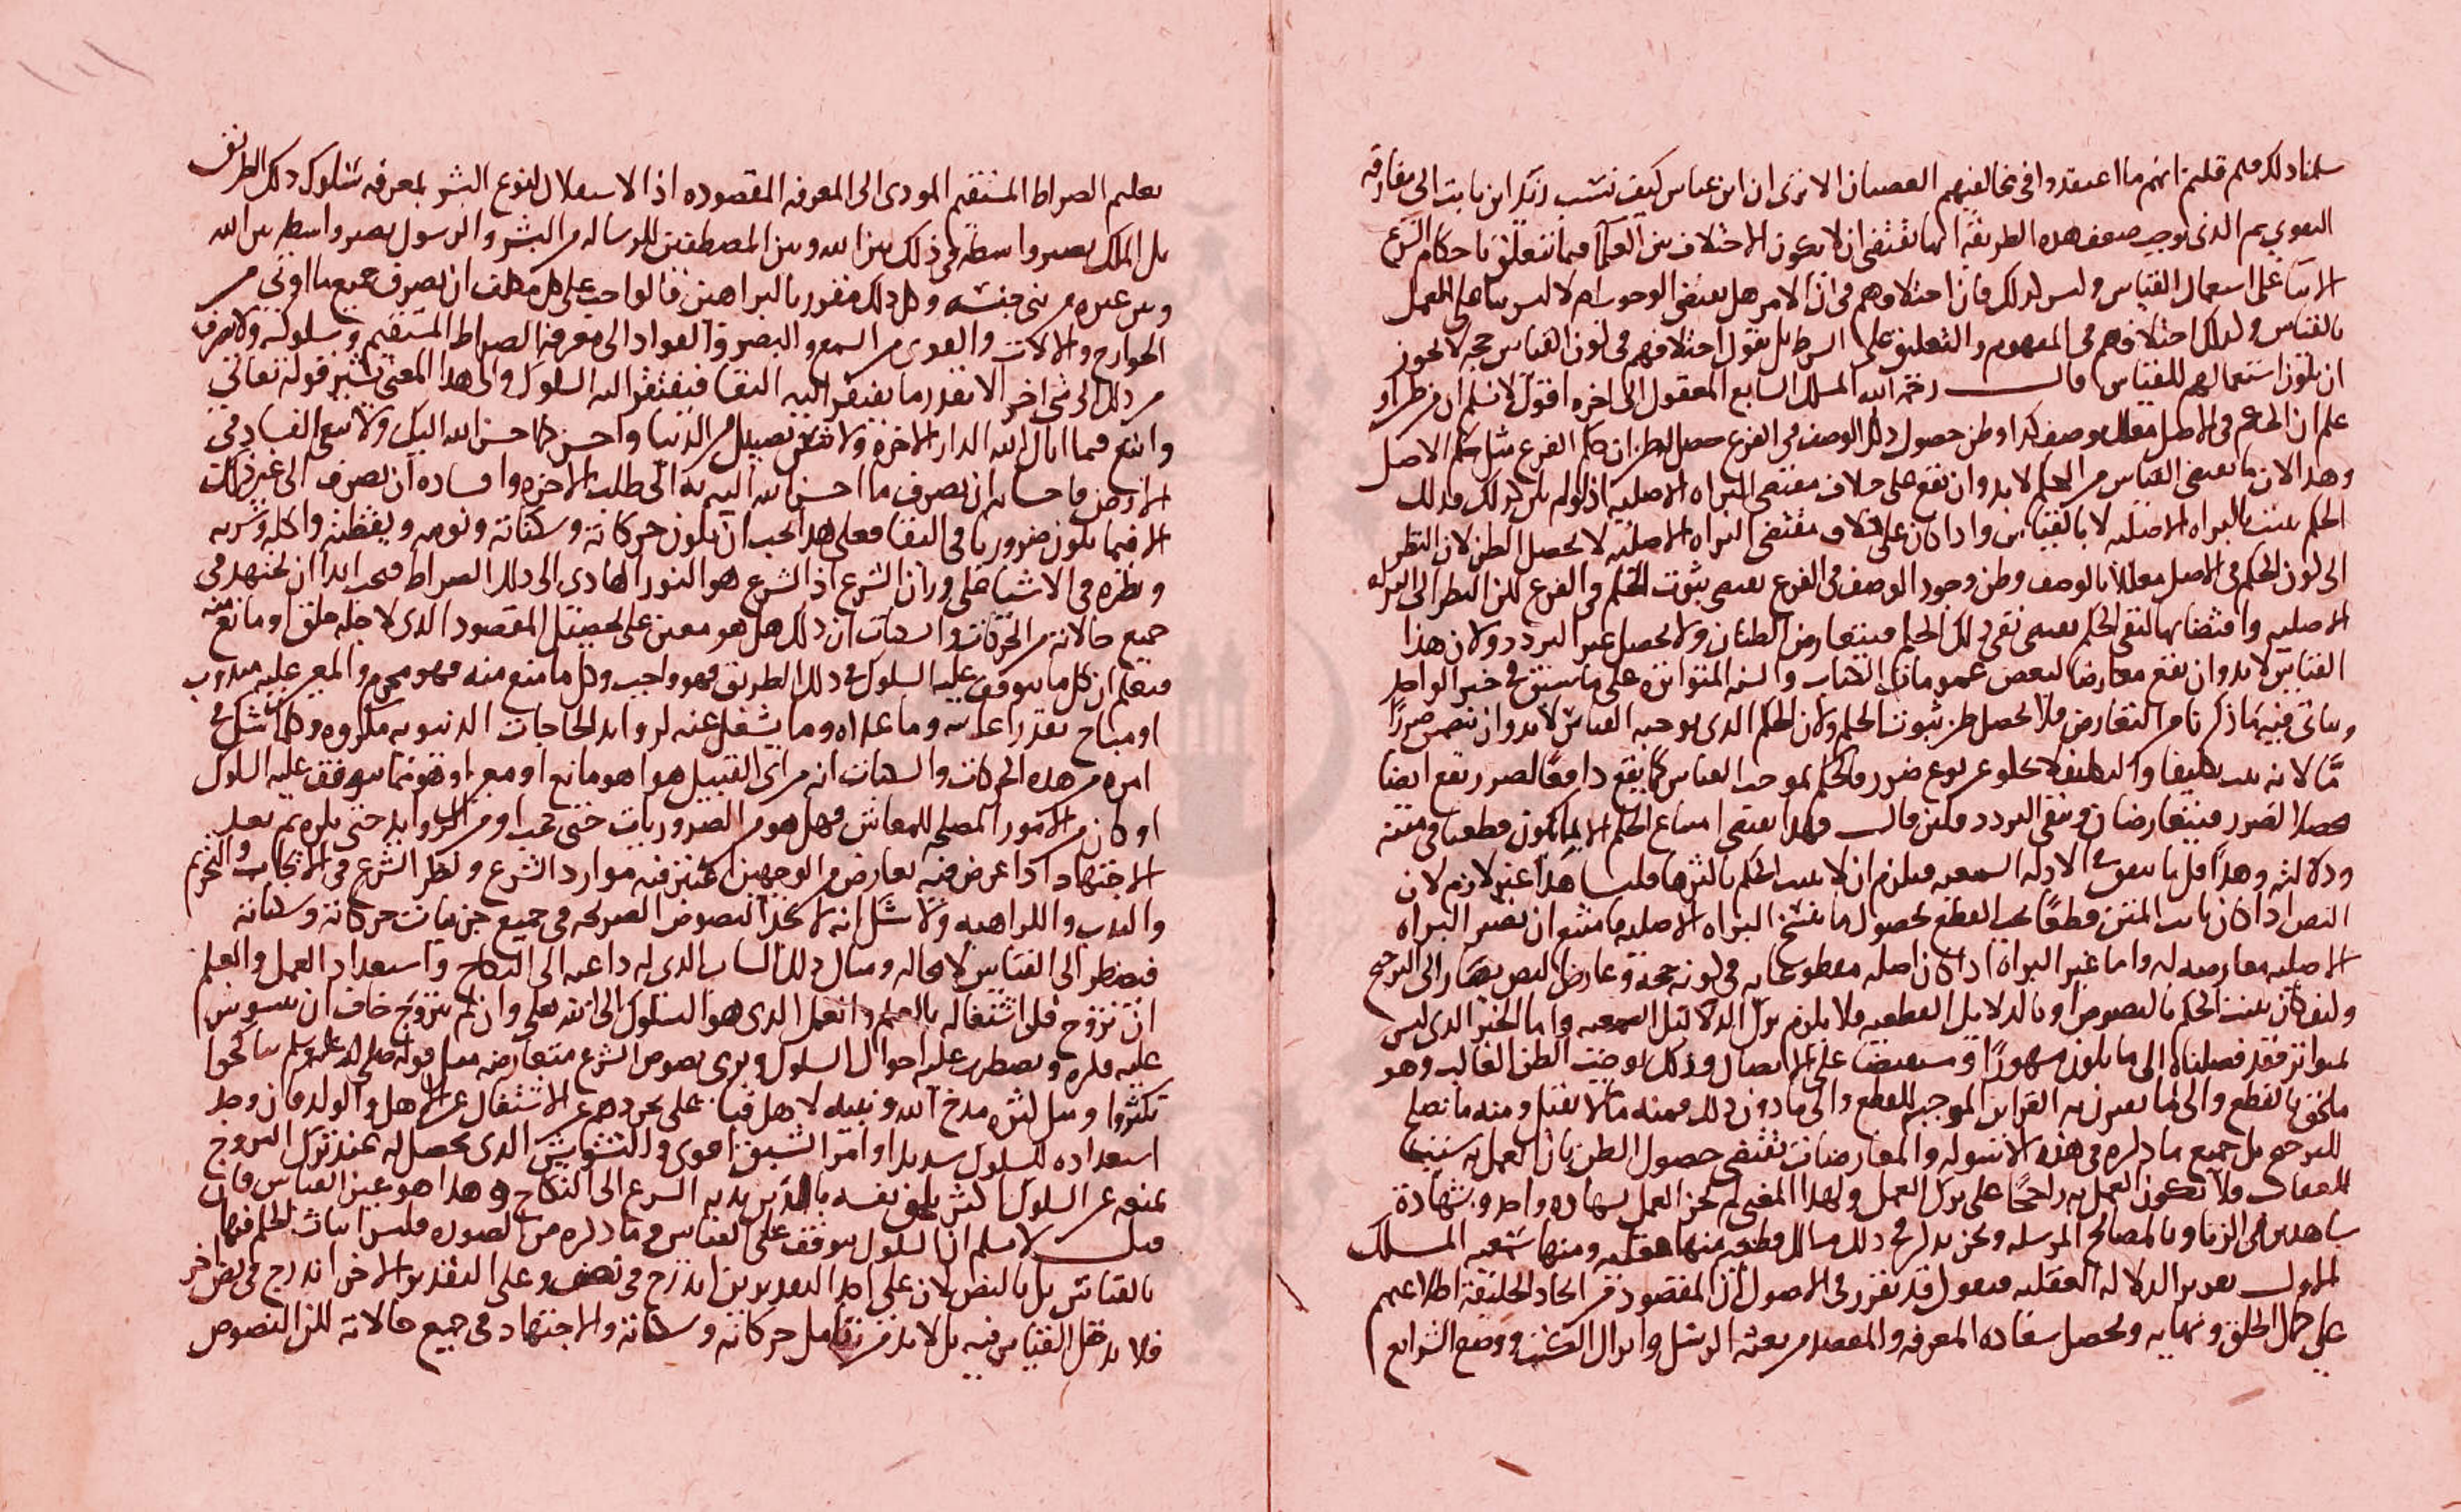 سلمنا ذلك فلم قلتم انهم ما اعتقدوا في مخالفيهم العصيان الا ترى ان ابن عباس كيف نسب زيد ابن ثابت الى مفارقة
التقوى ثم الذي يوجب ضعف هذه الطريقة انها تقتضي ان لا يكون الاختلاف بين العلما فيما يتعلق باحكام الشرع
الا بنا على استعمال القياس وليس كذلك فان اختلافهم في ان الامر هل يقتضي الوجوب ام لا ليس بنا على العمل
بالقياس وكذلك اختلافهم في المفهوم والتعليق على الشرط بل نقول اختلافهم في كون القياس حجه لا يجوز
ان يكون استعمالهم للقياس قال رحمه الله المسلك السابع المعقول الى اخره اقول لا نسلم ان من ظن او
علم ان الحكم في الاصل معلل بوصف كذا وظن حصول ذلك الوصف في الفرع حصل الظن ان حكم الفرع مثل حكم الاصل
وهذا لان ما يقتضي القياس من الحكم لا بد وان يقع على خلاف مقتضى البراه الاصليه اذ لو لم يكن كذلك فذلك
الحكم يثبت بالبراه الاصليه لا بالقياس واذا كان على خلاف مقتضى البراه الاصليه لا يحصل الظن لان النظر
الى كون الحكم في الاصل معللا بالوصف وظن وجود الوصف في الفرع يقتضي ثبوت الحكم في الفرع لكن النظر الى البراه
الاصليه واقتضايها لنفي الحكم يقتضي نفي ذلك الحكم فيتعارض الظنان ولا يحصل غير التردد ولان هذا
القياس لا بد وان يقع معارضا لبعض عمومات الكتاب والسنه المتواتره على ما سبق في خبر الواحد
وياتي فيه ما ذكرنا من التعارض فلا يحصل ظن ثبوت الحكم ولان الحكم الذي يوجبه القياس لا بد وان يتضمن ضررا
ما لانه يثبت تكليفا والتكليف لا يخلو عن نوع ضرر فالحكم بموجب القياس كما يقع دافعا لضرر يقع ايضا
محصلا لضرر فيتعارضان ويبقى التردد فلئن قال فهذا يقتضي امتناع الحكم الا بما يكون قطعيا في متنه
ودلالته وهذا قل ما يتفق في الادله السمعيه فيلزم ان لا يثبت الحكم باكثرها قلنا هذا غير لازم لان
النص اذا كان ثابت المتن قطعا يجب القطع بحصول ما ينسخ البراه الاصليه فامتنع ان تصير البراه
الاصليه معارضه له واما غير البراة اذا كان اصله مقطوعا به في كونه حجة وعارض النص يصار الى الترجيح
وليف كان يثبت الحكم بالنصوص او بالدلايل القطعيه فلا يلزم ترك الدلايل السمعيه واما الخبر الذي ليس
بمتواتر فقد فصلناه الى ما يكون مشهورا و مستفيضا على الاتصال وذلك يوجب الظن الغالب وهو
ملحق بالقطع والى ما يقترن به القراين الموجبه للقطع والى ما دون ذلك فمنه ما لا يقبل ومنه ما يصلح
للترجيح بل جميع ما ذكره في هذه الاسوله والمعارضات يقتضي حصول الظن بان العمل به سبب
للعقاب فلا يكون العمل به راجحا على ترك العمل ولهذا المعنى لم يجز العمل بشهاده واحد وبشهادة
شاهدين في الزنا وبالمصالح المرسله ونحن نذكر في ذلك مسالك قطعيه منها عقليه ومنها سمعيه المسلك
الاول تقرير الدلاله العقليه فنقول قد تقرر في الاصول ان المقصود من ايجاد الخليقة اطلاعهم
على جمال الحق وبهايه وتحصيل سعاده المعرفه والمقصد من بعثه الرسل وانزال الكتب ووضع الشرايع
تعليم الصراط المستقيم المودي الى المعرفه المقصوده اذ لا استقلال لنوع البشر بمعرفه سلوك ذلك الطريق
بل الملك يصير واسطه في ذلك بين الله وبين المصطفين للرساله من البشر والرسول يصير واسطه بين الله
وبين غيره من بني جنسه وكل ذلك مقرر بالبراهين فالواجب على كل مكلف ان يصرف جميع ما اوتي من
الجوارح والالات والقوى من السمع والبصر والفواد الى معرفه الصراط المستقيم وسلوكه ولا يصرف
من ذلك الى شي اخر الا بقدر ما يفتقر اليه البقا فيفتقر اليه السلوك والى هذا المعنى يشير قوله تعالى
وابتغ فيما اتاك الله الدار الاخرة ولا تنس نصيبك من الدنيا واحسن كما احسن الله اليك ولا تبغ الفساد في
الارض فاحسانه ان يصرف ما احسن الله اليه به الى طلب الاخره وافساده ان يصرف الى غير ذلك
الا فيما يكون ضروريا في البقا فعلى هذا يجب ان يكون حركاته وسكناته ونومه ويقظته واكله وشربه
ونظره في الاشيا على وزان الشرع اذ الشرع هو النور الهادي الى ذلك الصراط فيجب ابدا ان يجتهد في
جميع حالاته من الحركات والسكنات ان ذلك هل هو معين على تحصيل المقصود الذي لاجله خلق او مانع منه
فيعلم ان كل ما يتوقف عليه السلوك في ذلك الطريق فهو واجب وكل ما منع منه فهو محرم والمعين عليه مندوب
او مباح بقدر اعانته وما عداه وما يشغل عنه لزوايد الحاجات الدنيويه مكروه وكلما شك في
امره من هذه الحركات والسكنات انه من اي القبيل هو اهو مانع او معين او هو مما يتوقف عليه السلوك
او كان من الامور المصلحه للمعاش فهل هو من الضروريات حتى يجب او من الزوايد حتى يكره ثم بعد
الاجتهاد اذا عرض فيه تعارض من الوجهين اعتبر فيه موارد الشرع ونظر الشرع في الايجاب والتحريم
والندب والكراهيه ولا شك انه لا يجد النصوص الصريحه في جميع جزييات حركاته وسكناته
فيضطر الى القياس لا محاله ومثال ذلك الشاب الذي له داعيه الى النكاح واستعداد العمل والعلم
ان تزوج قل اشتغاله بالعلم والعمل الذي هو السلوك الى الله تعلى وان لم يتزوج خاف ان يتشوش
عليه فكره ويضطرب عليه احوال السلوك ويرى نصوص الشرع متعارضه مثل قوله صلى الله عليه وسلم تناكحوا
تكثروا ومثل كثره مدح الله ونبيه لاهل قبا على تجردهم عن الاشتغال عن الاهل والولد فان وجد
استعداده للسلوك شديدا وامر الشبق اقوى و التشويش الذي يحصل له عند ترك التزوج
يمنعه عن السلوك اكثر يلحق نفسه بالذين ندبهم الشرع الى النكاح وهذا هو عين القياس فان
قيل لا نسلم ان السلوك يتوقف على القياس و ما ذكره من الصوره فليس اثبات الحكم فيها
بالقياس بل بالنص لان على احد التقديرين اندرج في نصف وعلى التقدير الاخر اندرج في نص اخر
فلا يدخل القياس فيه بل لا بد من تامل حركاته وسكناته والاجتهاد في جميع حالاته لكن النصوص